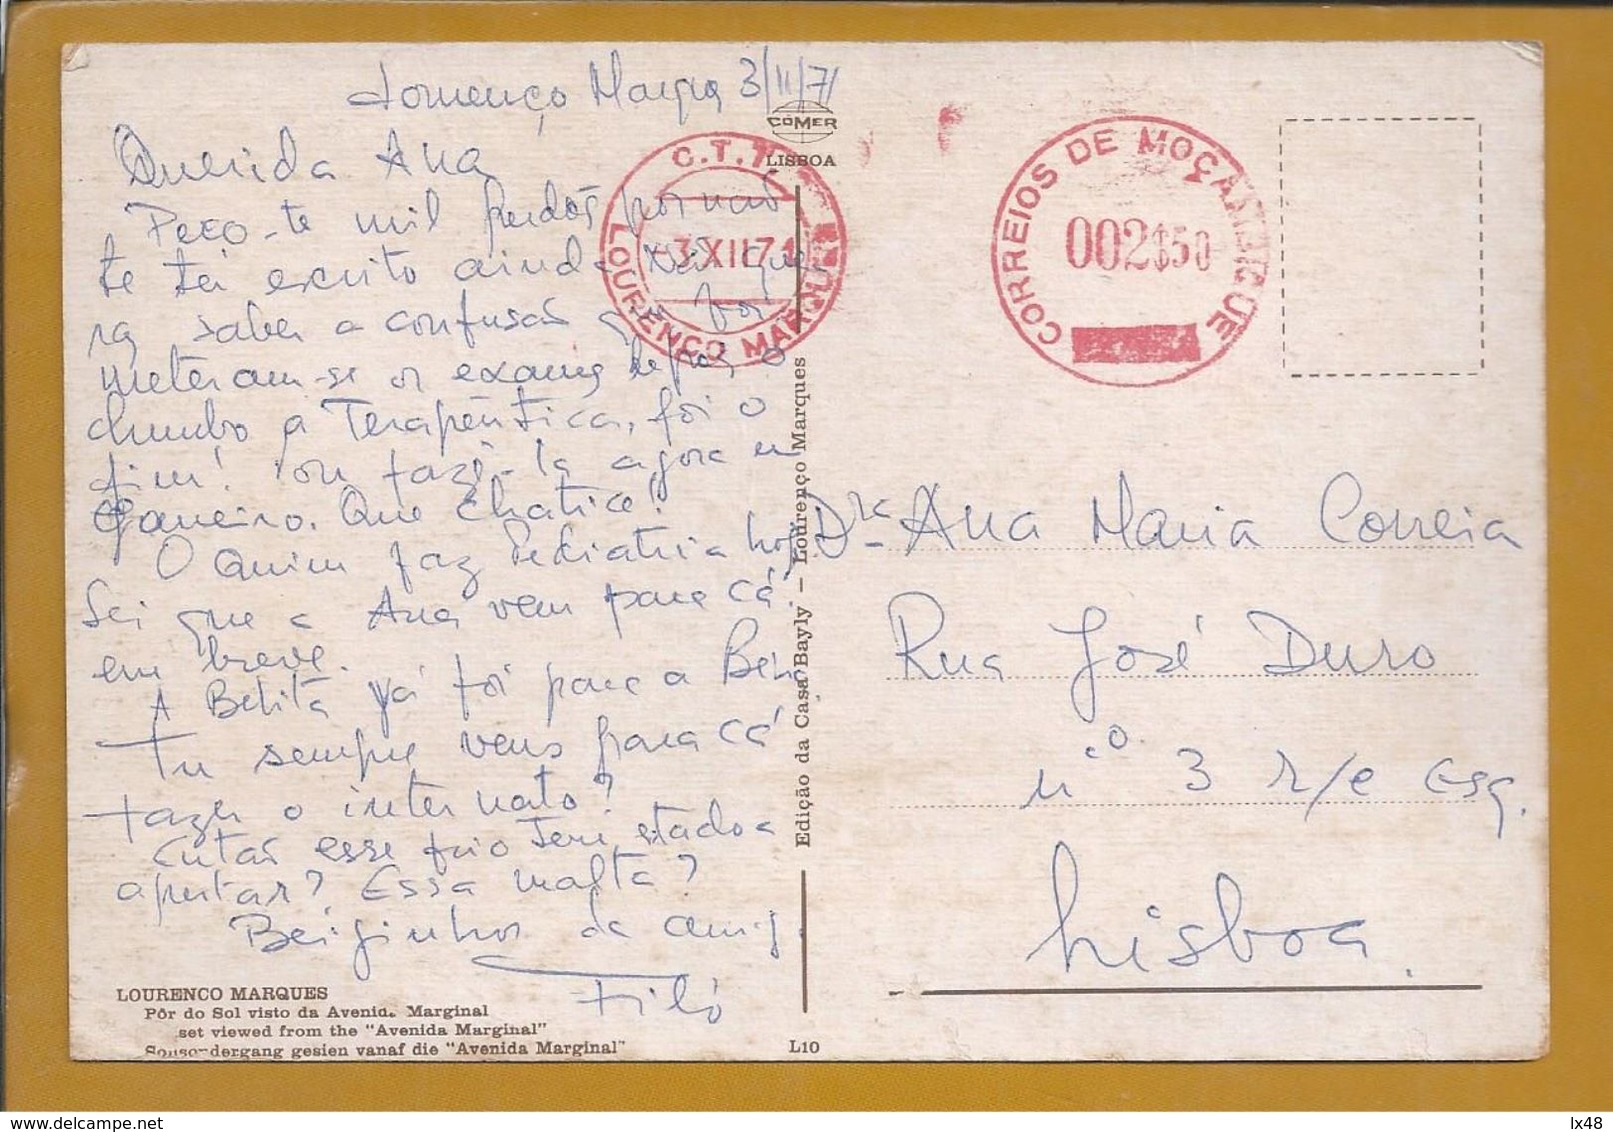 Lourenço Marques 3/11/71
Querida Ana
Peço-te mil perdões por não
te ter escrito ainda
ra saber a confusão que foi
meteram-se os exames depois o
chumbo a Terapêutica, foi o
fim! Vou fazê-la agora em
Janeiro. Que chatice!
O Quim faz Pediatria hoje
Sei que a Ana vem para cá
em breve.
A Belita já foi para a Beira
Tu sempre vens para cá
fazer o internato?
Então esse frio tem estado a
apertar? Essa malta?
Beijinhos da amiga
Filó
CÓMER
LISBOA
C.T.T.
-3.XII.71
LOURENÇO MARQUES
CORREIOS DE MOÇAMBIQUE
002$50
Edição da Casa Bayly - Lourenço Marques
Drª Ana Maria Correia
Rua José Duro
nº 3 r/c Esq.
Lisboa.
LOURENCO MARQUES
Pôr do Sol visto da Avenida Marginal
set viewed from the "Avenida Marginal"
gesien vanaf die "Avenida Marginal"
L10
delcampe.net
lx48